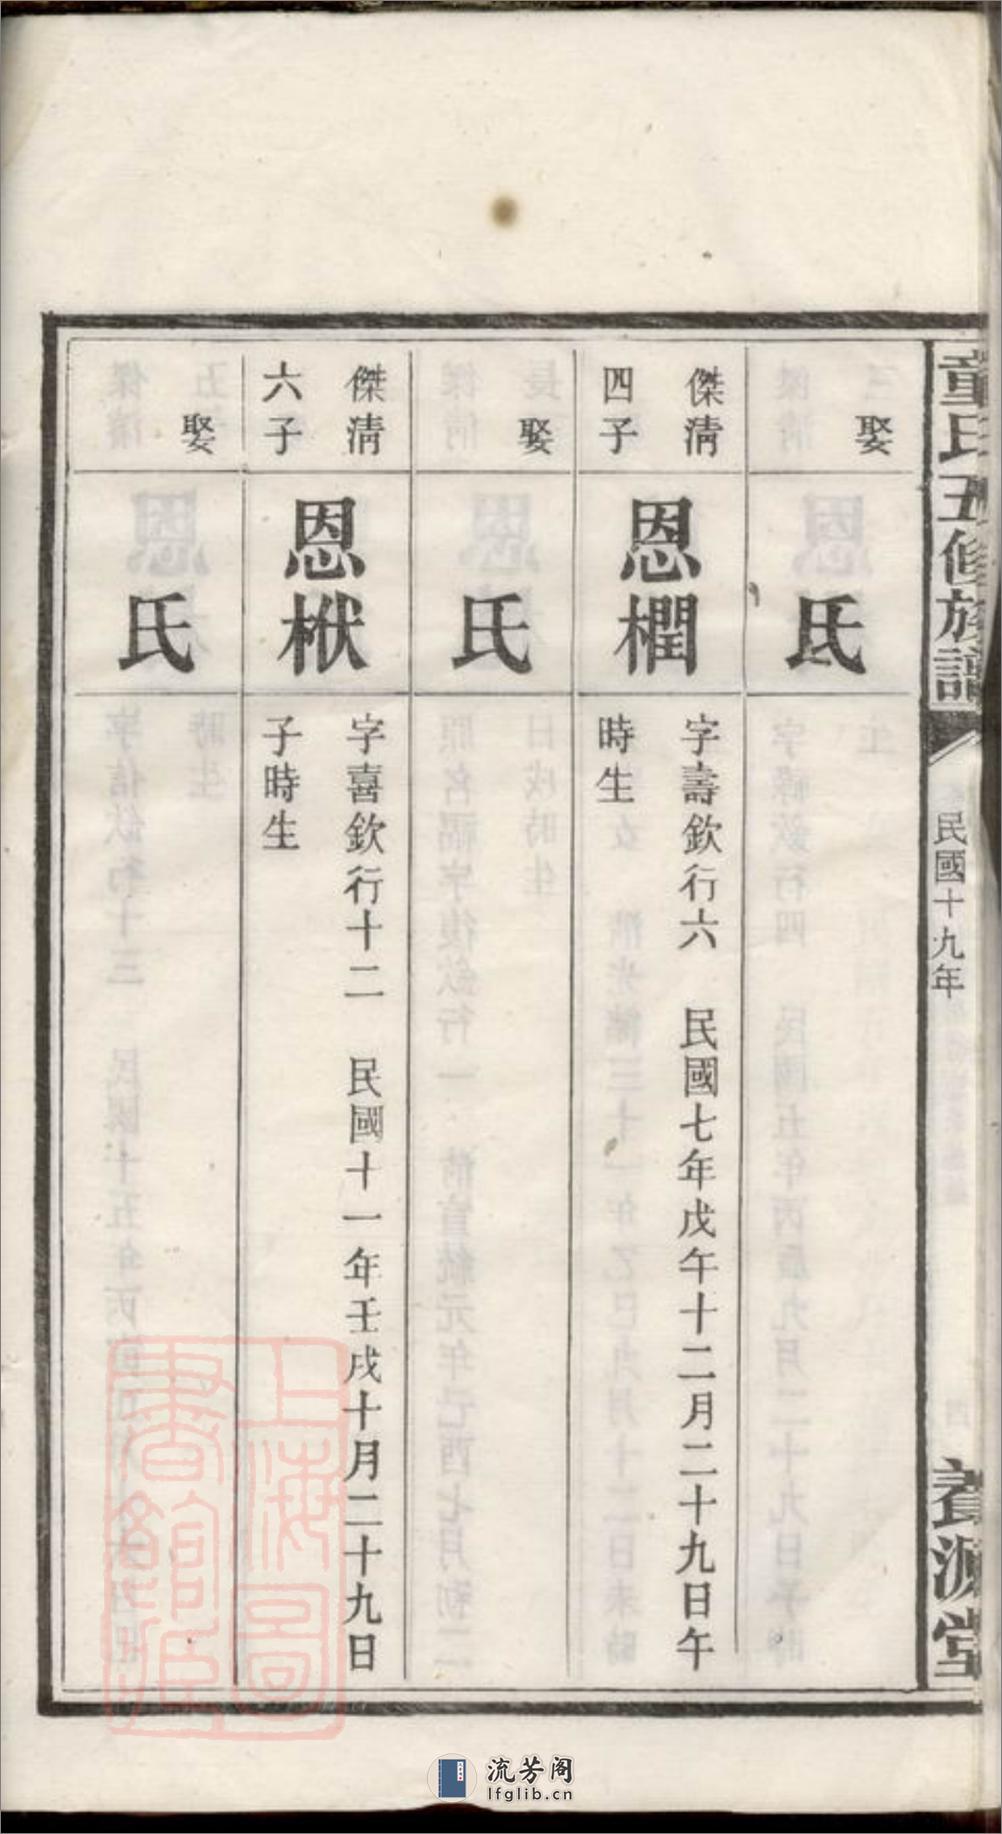 童氏五修族譜
民國十九年
養源堂
娶
氏
傑清
四子
恩橺
字壽欽行六 民國七年戊午十二月二十九日午
時生
娶
氏
傑清
六子
恩栿
字喜欽行十二 民國十一年壬戌十月二十九日
子時生
娶
氏
上海圖
書館藏
流芳阁
lfglib.cn